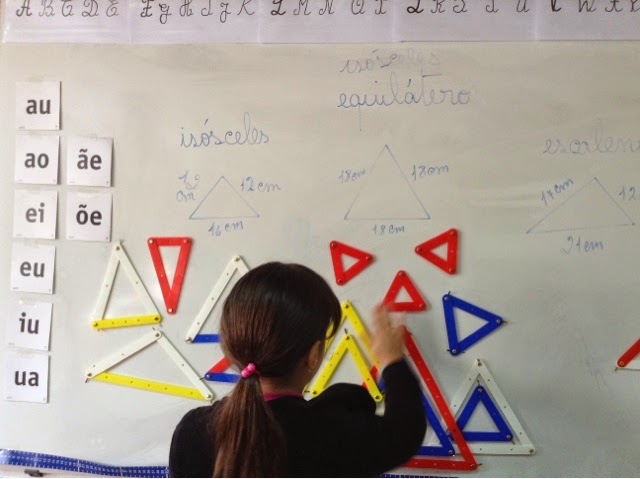 A B C D E F G H I J K L M N O P Q R S T U V W X Y
au
ao ãe
ei õe
eu
iu
ua
isósceles
equilátero
isósceles
12 cm
16 cm
18 cm 18 cm
18 cm
17 cm 12
21 cm